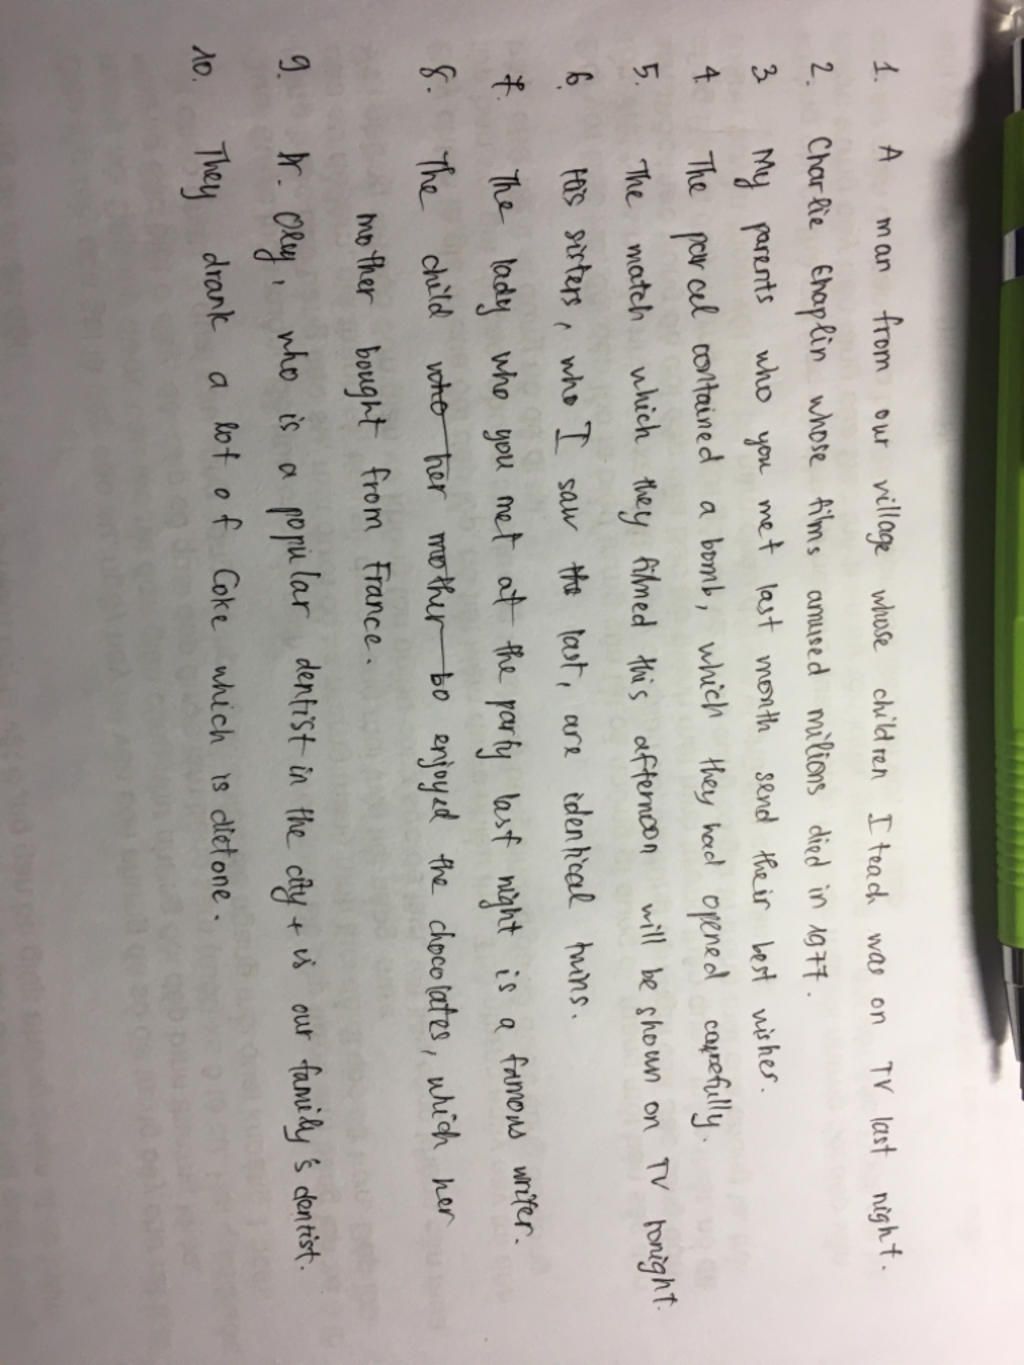 1. A man from our village whose children I teach was on TV last night.
2. Charlie Chaplin whose films amused milions died in 1977.
3 My parents who you met last month send their best wisher.
4 The parcel contained a bomb, which they had opened carefully.
5. The match which they filmed this afternoon will be shown on TV tonight.
6. His sisters, who I saw the last, are identical twins.
7. The lady who you met at the party last night is a famous writer.
8. The child who her mother bo enjoyed the chocolates, which her
mother bought from France.
9. Dr. Oley, who is a popular dentist in the city + is our family's dentist.
10. They drank a lot of Coke which is dietone.